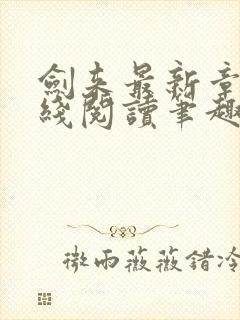 劍来最新章
綫閱讀筆趣
微雨薇薇錯冷